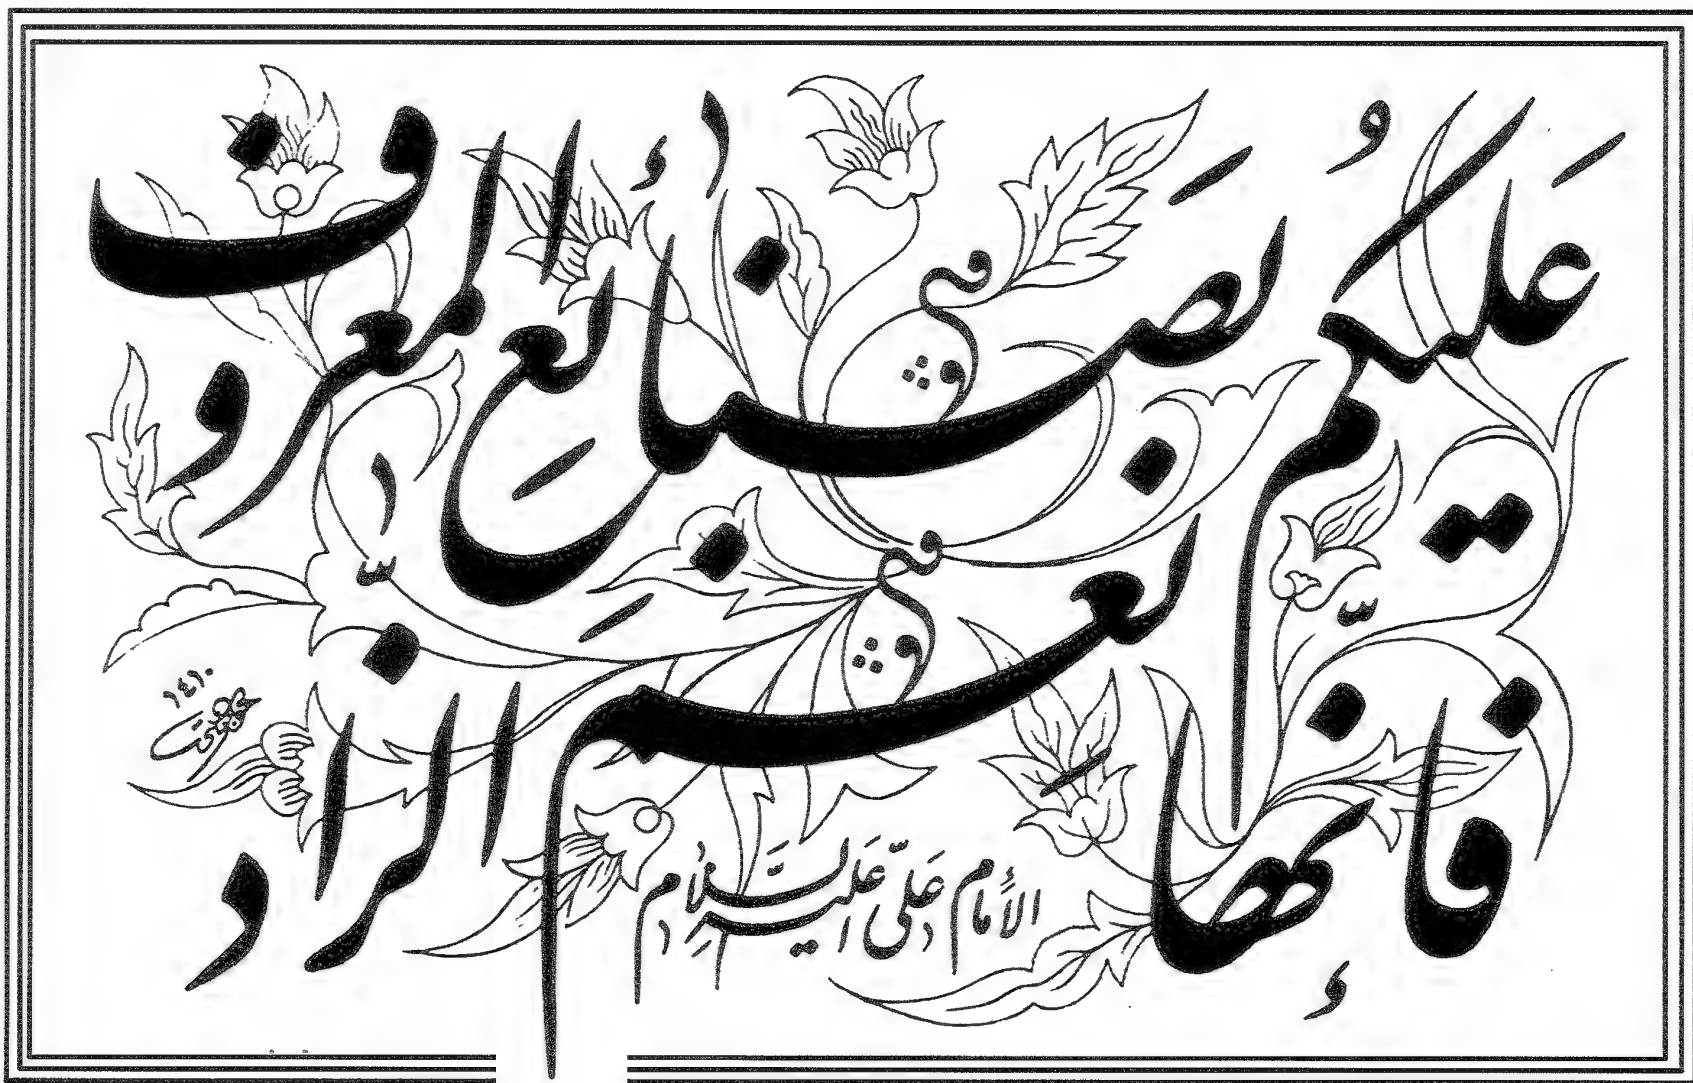 عَلَيكُم بصَنائعِ المعروف
فإنّها نعمَ الزاد
الإمام عَلي عَلَيهِ السَّلام
١٤١٠